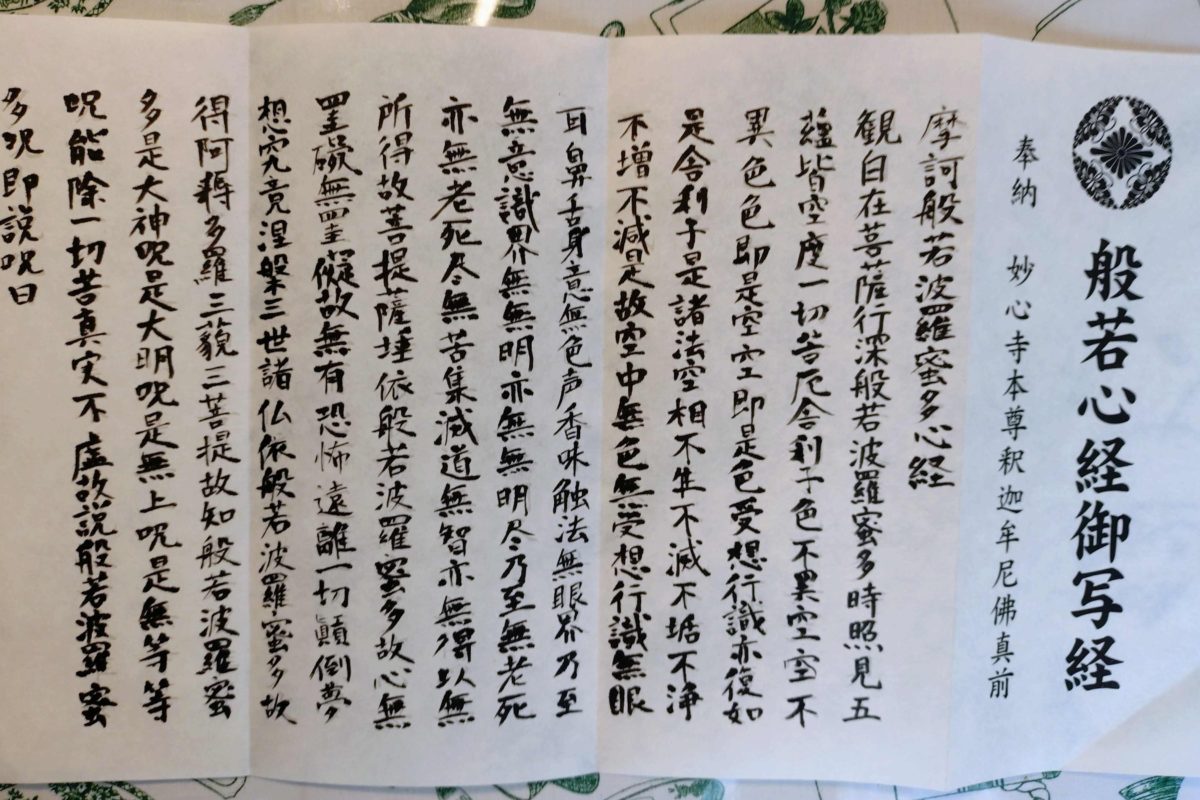 般若心経御写経
奉納 妙心寺本尊釈迦牟尼佛真前
摩訶般若波羅蜜多心経
観自在菩薩行深般若波羅蜜多時照見五
蘊皆空度一切苦厄舎利子色不異空空不
異色色即是空空即是色受想行識亦復如
是舎利子是諸法空相不生不滅不垢不浄
不増不減是故空中無色無受想行識無眼
耳鼻舌身意無色声香味触法無眼界乃至
無意識界無無明亦無無明尽乃至無老死
亦無老死尽無苦集滅道無智亦無得以無
所得故菩提薩埵依般若波羅蜜多故心無
罣礙無罣礙故無有恐怖遠離一切顛倒夢
想究竟涅槃三世諸仏依般若波羅蜜多故
得阿耨多羅三藐三菩提故知般若波羅蜜
多是大神呪是大明呪是無上呪是無等等
呪能除一切苦真実不虚故説般若波羅蜜
多呪即説呪曰